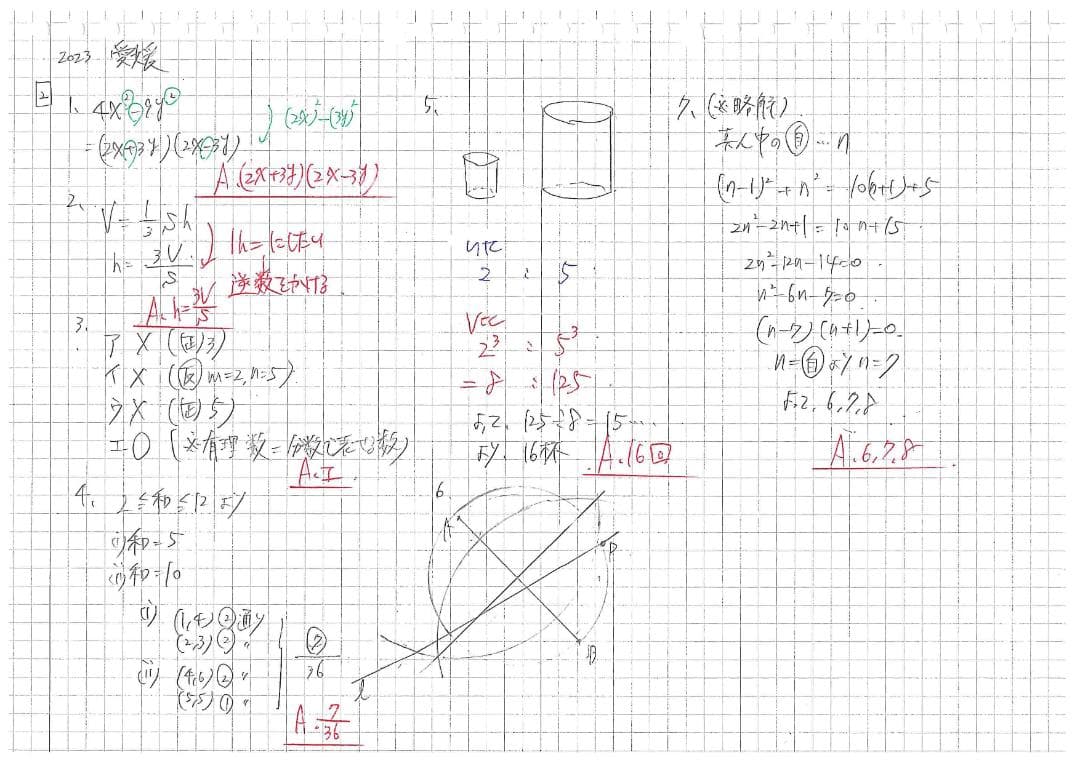 2023 愛媛
2
1、 4x²-9y²
(2x)²-(3y)²
=(2x+3y)(2x-3y)
A.(2x+3y)(2x-3y)
2、
V=1/3Sh
h=3V/S
h=にしたい
逆数をかける
A、h=3V/S
3、
ア X (正3)
イ X (反 m=2,n=5)
ウ X (正5)
エ O (※有理数=分数で表せる数)
A、エ
4、 2≦和≦12 より
(i)和=5
(ii)和=10
(i) (1,4)②通り
(2,3)② 〃
(ii) (4,6)② 〃
(5,5)① 〃
⑦/36
A. 7/36
5、
2 : 5
2³ : 5³
=8 : 125
よって、125÷8=15…
より、16杯
A.16回
6、
A
P
B
l
7、(※略解)
真ん中の自…n
(n-1)²+n²=10(n+1)+5
2n²-2n+1=10n+15
2n²-12n-14=0
n²-6n-7=0
(n-7)(n+1)=0
n=自よりn=7
よって、6,7,8
A、6,7,8